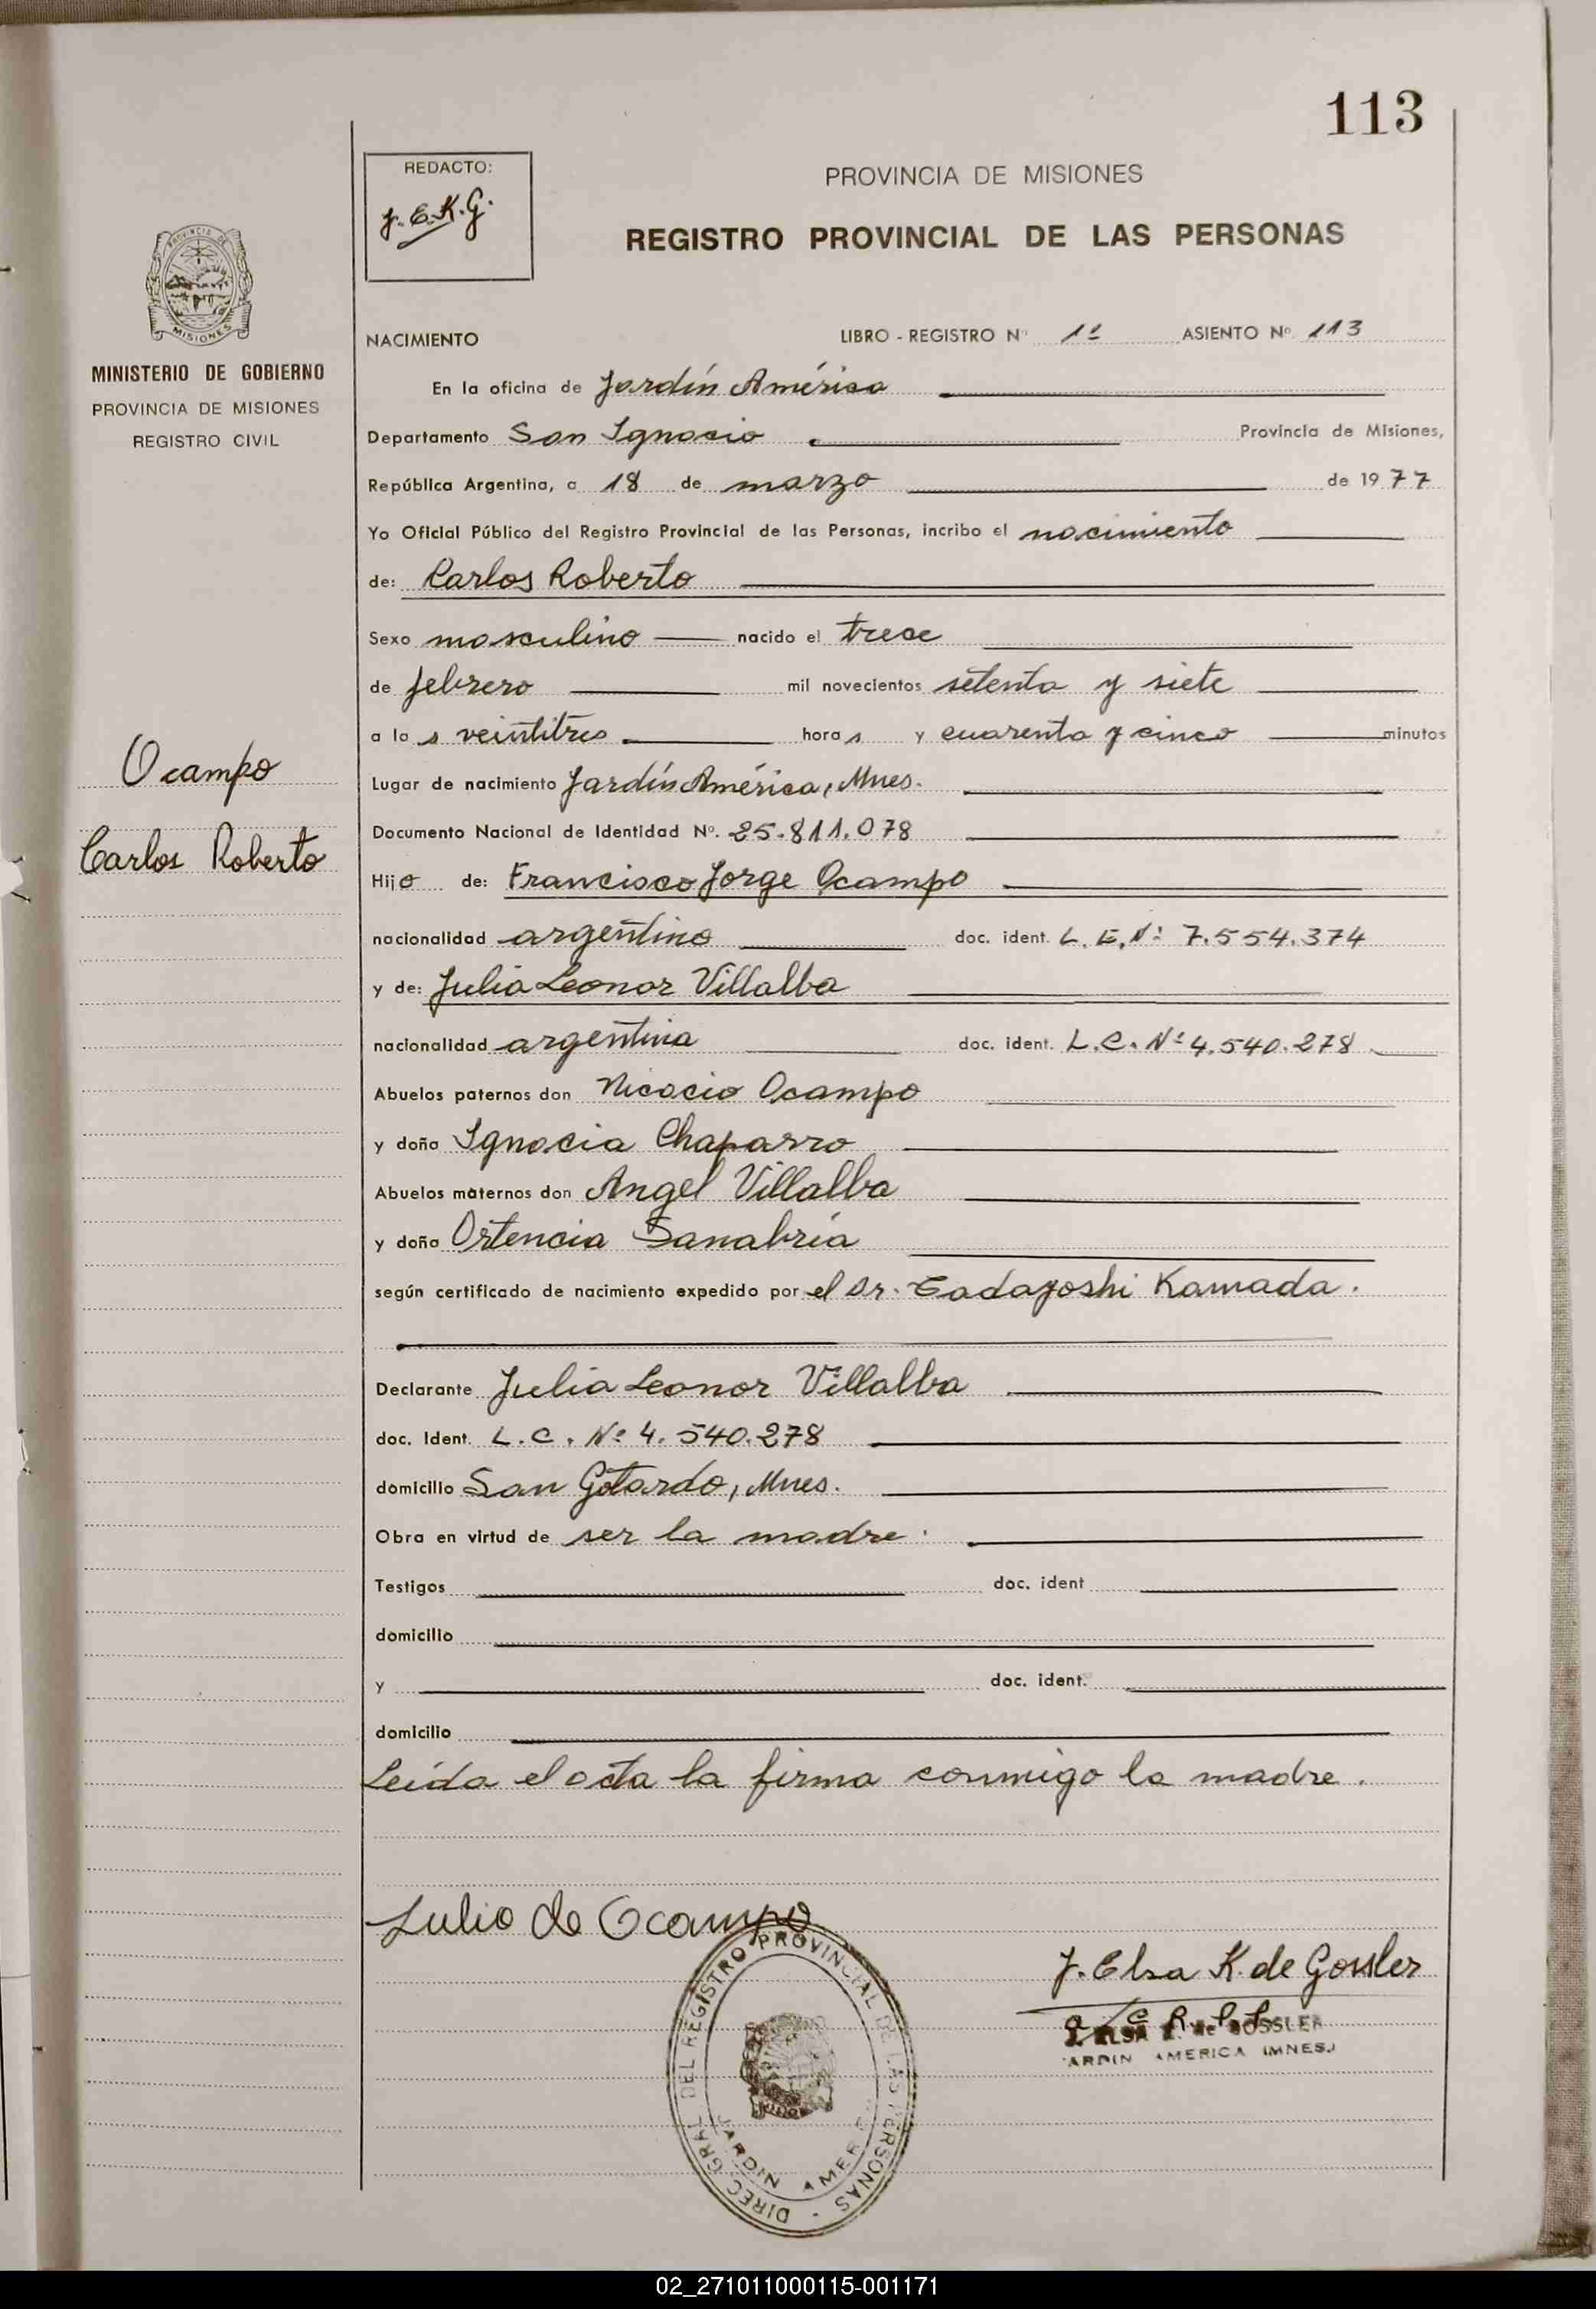 113
REDACTO:
J. E. K. G.
PROVINCIA DE MISIONES
REGISTRO PROVINCIAL DE LAS PERSONAS
PROVINCIA DE
MISIONES
MINISTERIO DE GOBIERNO
PROVINCIA DE MISIONES
REGISTRO CIVIL
NACIMIENTO LIBRO - REGISTRO Nº 1º ASIENTO Nº 113
En la oficina de Jardín América
Departamento San Ignacio Provincia de Misiones,
República Argentina, a 18 de marzo de 1977
Yo Oficial Público del Registro Provincial de las Personas, incribo el nacimiento
de: Carlos Roberto
Sexo masculino nacido el trece
de febrero mil novecientos setenta y siete
a las veintitres horas y cuarenta y cinco minutos
Ocampo
Carlos Roberto
Lugar de nacimiento Jardín América, Mnes.
Documento Nacional de Identidad Nº. 25.811.078
Hijo de: Francisco Jorge Ocampo
nacionalidad argentino doc. ident. L. E. Nº 7.554.374
y de: Julia Leonor Villalba
nacionalidad argentina doc. ident. L.C. Nº 4.540.278
Abuelos paternos don Nicacio Ocampo
y doña Ignacia Chaparro
Abuelos maternos don Angel Villalba
y doña Ortencia Sanabria
según certificado de nacimiento expedido por el Dr. Tadayoshi Kamada.
Declarante Julia Leonor Villalba
doc. Ident. L.C. Nº 4.540.278
domicilio San Gotardo, Mnes.
Obra en virtud de ser la madre.
Testigos doc. ident
domicilio
y doc. ident.
domicilio
Leída el acta la firma conmigo la madre.
Julio de Ocampo
J. Elsa K. de Gossler
a/c R.P.P.
J. ELSA K. de GOSSLER
JARDIN AMERICA (MNES.)
DIREC. GRAL. DEL REGISTRO PROVINCIAL DE LAS PERSONAS
JARDIN AMER
02_271011000115-001171